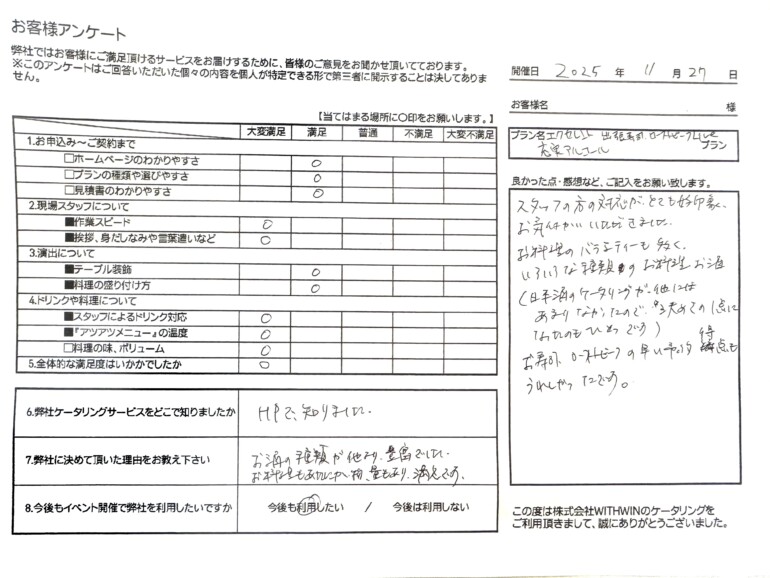 お客様アンケート
弊社ではお客様にご満足頂けるサービスをお届けするために、皆様のご意見をお聞かせ頂いてております。
※このアンケートはご回答いただいた個々の内容を個人が特定できる形で第三者に開示することは決してありま
せん。
【当てはまる場所に○印をお願いします。】
大変満足 満足 普通 不満足 大変不満足
1.お申込み～ご契約まで
□ホームページのわかりやすさ ○
□プランの種類や選びやすさ ○
□見積書のわかりやすさ ○
2.現場スタッフについて
■作業スピード ○
■挨拶、身だしなみや言葉遣いなど ○
3.演出について
■テーブル装飾 ○
■料理の盛り付け方 ○
4.ドリンクや料理について
■スタッフによるドリンク対応 ○
■『アツアツメニュー』の温度 ○
□料理の味、ボリューム ○
5.全体的な満足度はいかかでしたか ○
6.弊社ケータリングサービスをどこで知りましたか HPで、知りました。
7.弊社に決めて頂いた理由をお教え下さい お酒の種類が他より、豊富でした。
お料理も 量もあり、満足です。
8.今後もイベント開催で弊社を利用したいですか 今後も利用したい / 今後は利用しない
開催日 2025 年 11 月 27 日
お客様名 様
プラン名 エクセレント 出張寿司、ローストビーフLive
充実アルコール プラン
良かった点・感想など、ご記入をお願い致します。
スタッフの方の対応が、とても好印象、
お気づかいいただきました。
お料理のバラエティーも多く、
いろいろな種類のお料理、お酒
(日本酒のケータリングが、他には
あまりなかったので、決めての1点に
なったのもひとつです)
お寿司、ローストビーフの早い予約特点も
うれしかったです。
この度は株式会社WITHWINのケータリングを
ご利用頂きまして、誠にありがとうございました。